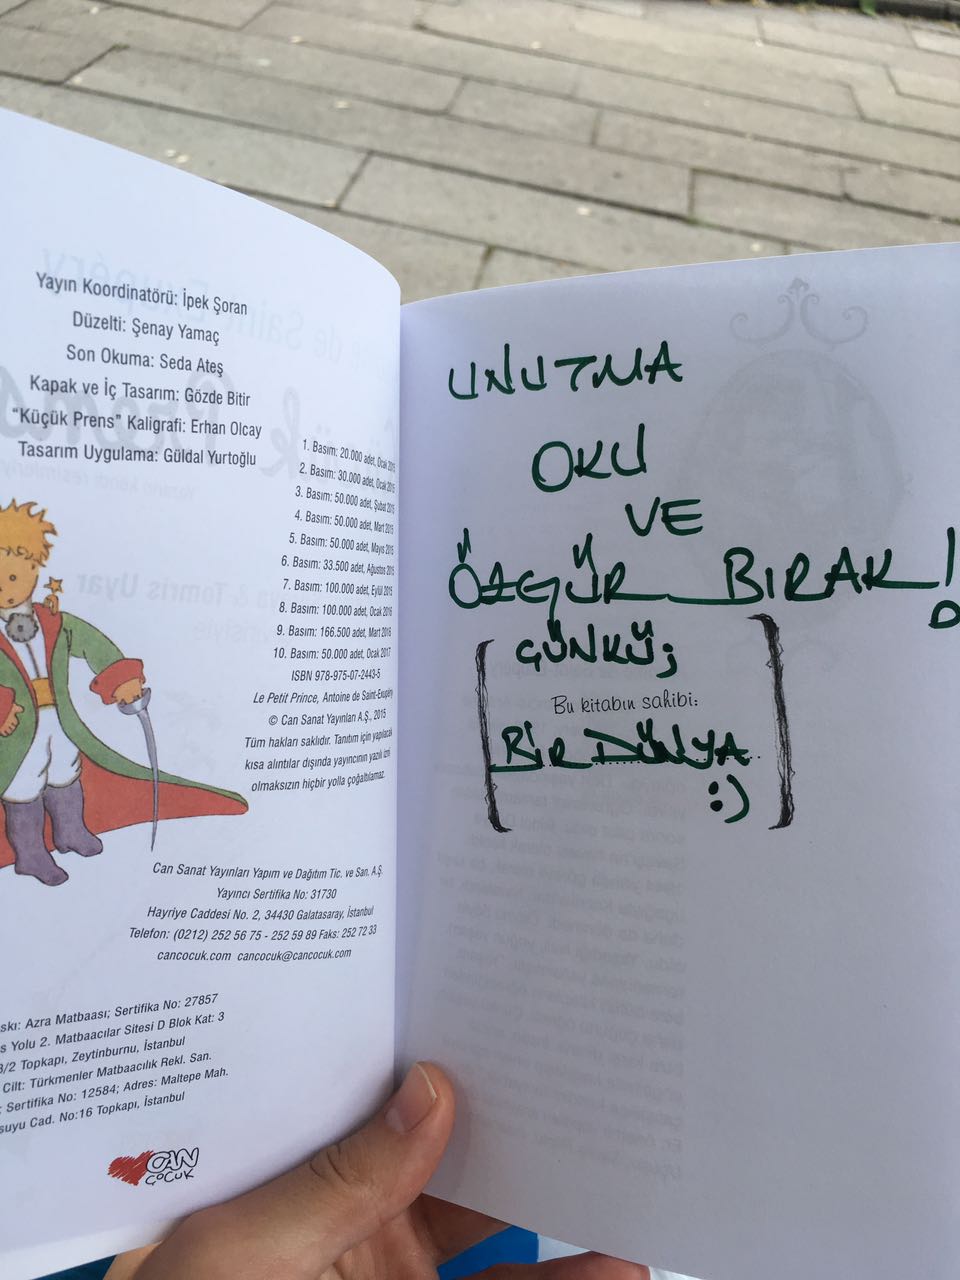 Yayın Koordinatörü: İpek Şoran
Düzelti: Şenay Yamaç
Son Okuma: Seda Ateş
Kapak ve İç Tasarım: Gözde Bitir
“Küçük Prens” Kaligrafi: Erhan Olcay
Tasarım Uygulama: Güldal Yurtoğlu
1. Basım: 20.000 adet, Ocak 2015
2. Basım: 30.000 adet, Ocak 2015
3. Basım: 50.000 adet, Şubat 2015
4. Basım: 50.000 adet, Mart 2015
5. Basım: 50.000 adet, Mayıs 2015
6. Basım: 33.500 adet, Ağustos 2015
7. Basım: 100.000 adet, Eylül 2015
8. Basım: 100.000 adet, Ocak 2016
9. Basım: 166.500 adet, Mart 2016
10. Basım: 50.000 adet, Ocak 2017
ISBN 978-975-07-2443-5
Le Petit Prince, Antoine de Saint-Exupéry
© Can Sanat Yayınları A.Ş., 2015
Tüm hakları saklıdır. Tanıtım için yapılacak
kısa alıntılar dışında yayıncının yazılı izni
olmaksızın hiçbir yolla çoğaltılamaz.
Can Sanat Yayınları Yapım ve Dağıtım Tic. ve San. A.Ş.
Yayıncı Sertifika No: 31730
Hayriye Caddesi No. 2, 34430 Galatasaray, İstanbul
Telefon: (0212) 252 56 75 - 252 59 89 Faks: 252 72 33
cancocuk.com cancocuk@cancocuk.com
skı: Azra Matbaası; Sertifika No: 27857
s Yolu 2. Matbaacılar Sitesi D Blok Kat: 3
3/2 Topkapı, Zeytinburnu, İstanbul
Cilt: Türkmenler Matbaacılık Rekl. San.
; Sertifika No: 12584; Adres: Maltepe Mah.
suyu Cad. No:16 Topkapı, İstanbul
CAN
ÇOCUK
UNUTMA
OKU
VE
ÖZGÜR BIRAK!
ÇÜNKÜ;
Bu kitabın sahibi:
BİR DÜNYA
:)